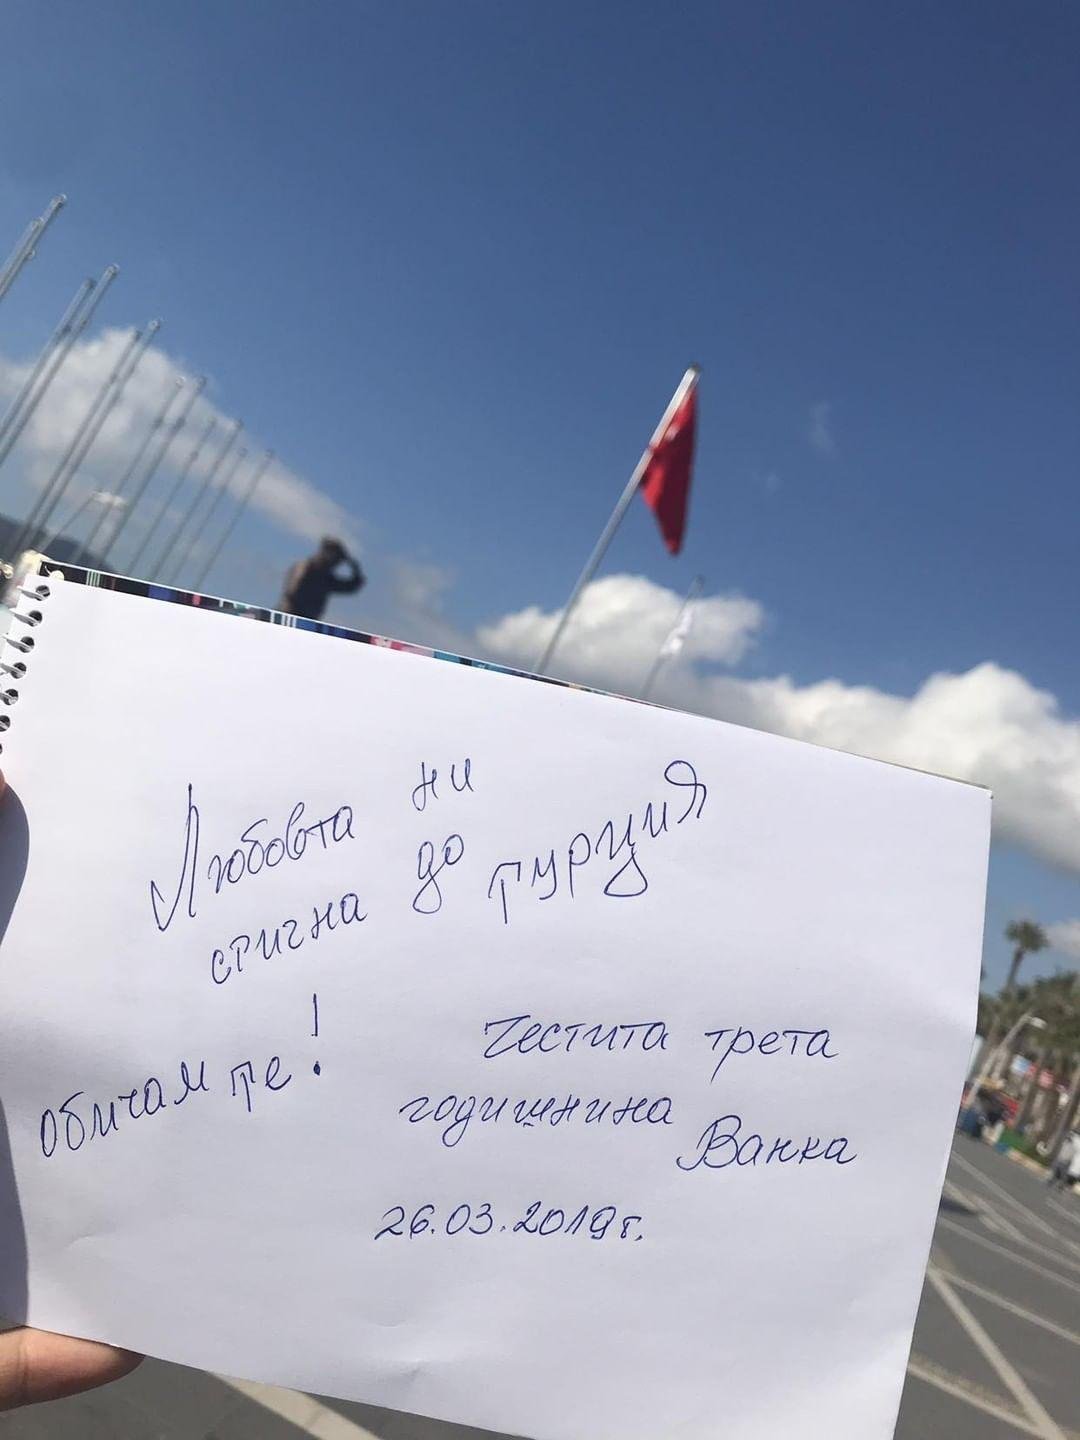 Любовта ни
стигна до турция
обичам те!
Честита трета
годишнина
Ванка
26.03.2019г.